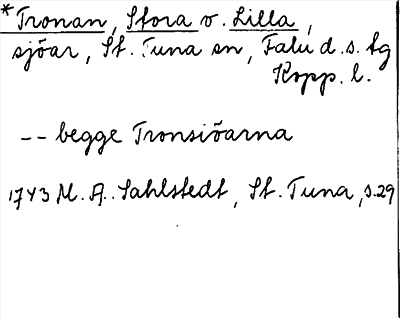 *Tronan, Stora o. Lilla,
sjöar, St. Tuna sn, Falu d.s. tg
Kopp. l.
-- begge Tronsiöarna
1743 M. A. Sahlstedt, St. Tuna, s.29